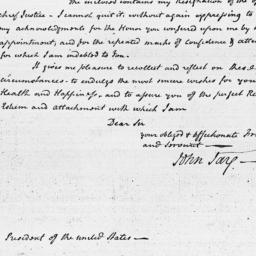 The enclosed contains my resignation of the
chief Justice – I cannot quit it, without again expressing to
my acknowledgments for the Honor you conferred upon me by
appointment, and for the repeated marks of confidence & atte
for which I am indebted to You.
It gives me pleasure to recollect and reflect on these
circumstances – to indulge the most sincere wishes for your
Health and Happiness – and to assure you of the perfect Re
Esteem and attachment with which I am
Dear Sir
your obliged & affectionate
and Servant –
John Jay –
President of the united States –